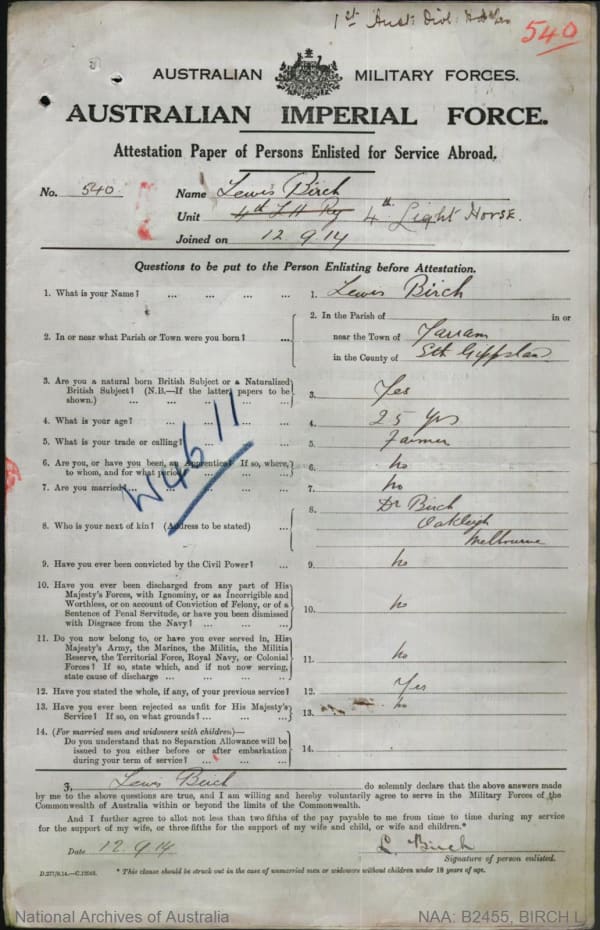 1st Aust: Div:
540
AUSTRALIAN MILITARY FORCES.
AUSTRALIAN IMPERIAL FORCE.
Attestation Paper of Persons Enlisted for Service Abroad.
No. 540. Name Lewis Birch
Unit 4th LH Rg 4th Light Horse.
Joined on 12.9.14
Questions to be put to the Person Enlisting before Attestation.
1. What is your Name? ... ... ... ... 1. Lewis Birch
2. In or near what Parish or Town were you born? ... 2. In the Parish of in or
near the Town of Yarram
in the County of Sth Gippsland
3. Are you a natural born British Subject or a Naturalized
British Subject? (N.B.—If the latter, papers to be
shown.) ... ... ... ... 3. Yes
4. What is your age? ... ... ... ... 4. 25 yrs
5. What is your trade or calling? ... ... ... 5. Farmer
6. Are you, or have you been, an Apprentice? If so, where,
to whom, and for what period? ... ... ... 6. no
7. Are you married? ... ... ... ... 7. no
W4611
8. Who is your next of kin? (Address to be stated) ... 8. Dr Birch
Oakleigh
Melbourne
9. Have you ever been convicted by the Civil Power? ... 9. no
10. Have you ever been discharged from any part of His
Majesty's Forces, with Ignominy, or as Incorrigible and
Worthless, or on account of Conviction of Felony, or of a
Sentence of Penal Servitude, or have you been dismissed
with Disgrace from the Navy? ... ... ... 10. no
11. Do you now belong to, or have you ever served in, His
Majesty's Army, the Marines, the Militia, the Militia
Reserve, the Territorial Force, Royal Navy, or Colonial
Forces? If so, state which, and if not now serving,
state cause of discharge ... ... ... 11. no
12. Have you stated the whole, if any, of your previous service? 12. Yes
13. Have you ever been rejected as unfit for His Majesty's
Service? If so, on what grounds? ... ... ... 13. no
14. (For married men and widowers with children)—
Do you understand that no Separation Allowance will be
issued to you either before or after embarkation
during your term of service? ... ... ... 14.
I, Lewis Birch do solemnly declare that the above answers made
by me to the above questions are true, and I am willing and hereby voluntarily agree to serve in the Military Forces of the
Commonwealth of Australia within or beyond the limits of the Commonwealth.
And I further agree to allot not less than two-fifths of the pay payable to me from time to time during my service
for the support of my wife, or three-fifths for the support of my wife and child, or wife and children.*
Date 12.9.14 L. Birch
Signature of person enlisted.
D.277/9.14.—C.12648. * This clause should be struck out in the case of unmarried men or widowers without children under 18 years of age.
National Archives of Australia NAA: B2455, BIRCH L